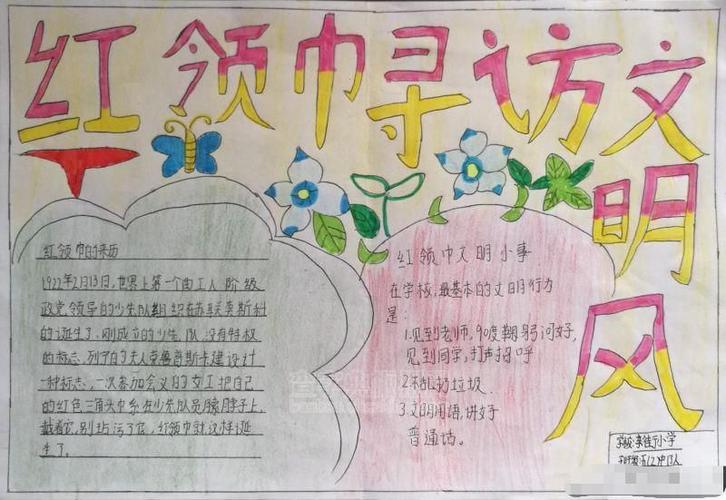 红领巾寻访文明风
红领巾的来历
1922年2月13日,世界上第一个由工人阶级
政党领导的少先队组织在苏联莫斯科
的诞生了,刚成立的少先队没有特权
的标志,列宁的夫人克鲁普斯卡建设计
一种标志,一次参加会义的女工把自己
的红色三角头巾系在少先队员脖子上,
戴着它,别玷污了它,红领巾就这样诞
生了。
红领巾文明小事
在学校,最基本的文明行为
是:
1.见到老师,90度鞠躬问好,
见到同学,打声招呼
2.不乱扔垃圾.
3.文明用语,讲好
普通话。
学校:
小学